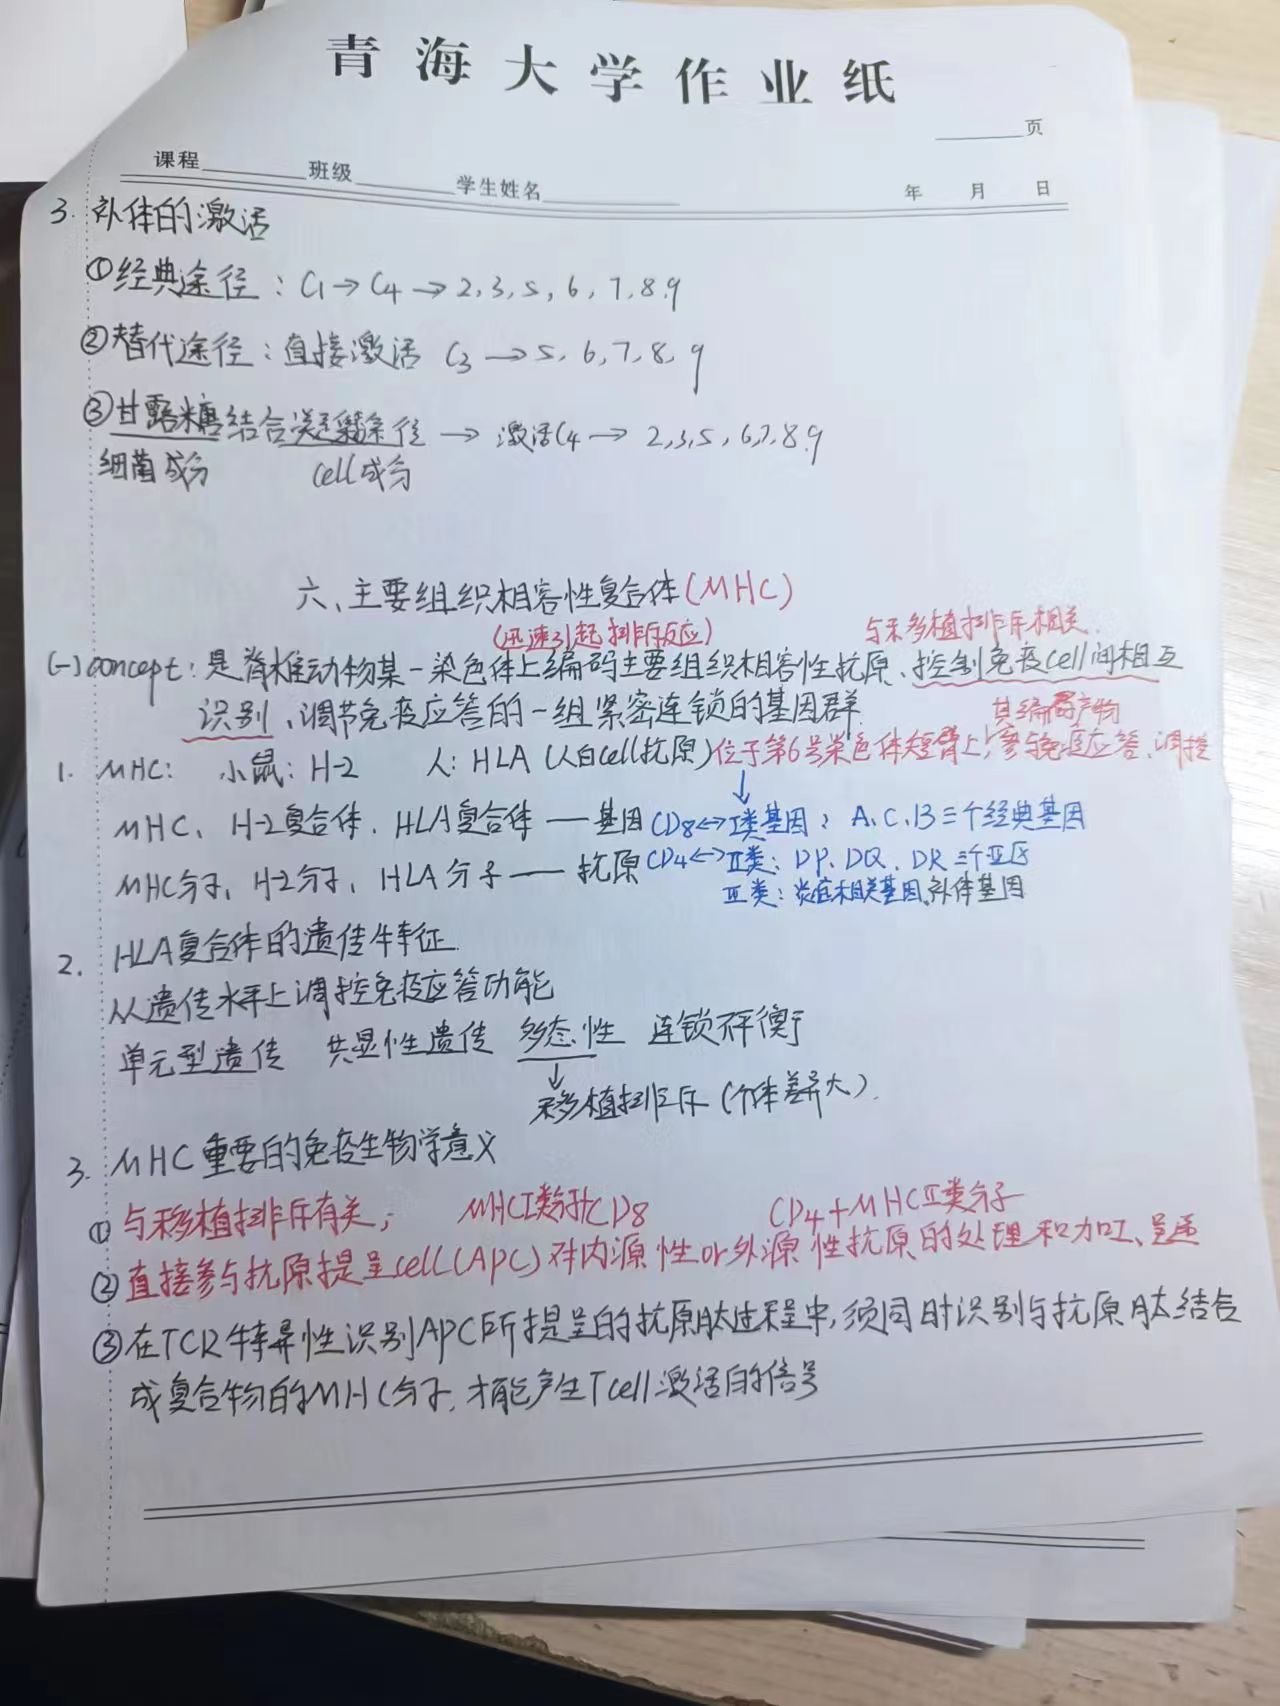 青海大学作业纸
页
课程 班级 学生姓名 年 月 日
3. 补体的激活
①经典途径：C1→C4→2,3,5,6,7,8,9
②替代途径：直接激活 C3→5,6,7,8,9
③甘露糖结合凝集素途径→激活C4→2,3,5,6,7,8,9
细菌成分 cell成分
六、主要组织相容性复合体(MHC)
(迅速引起排斥反应) 与移植排斥相关.
(一)concept：是脊椎动物某一染色体上编码主要组织相容性抗原、控制免疫cell间相互
识别、调节免疫应答的一组紧密连锁的基因群. 其编码产物
1. MHC：小鼠：H-2 人：HLA（人白cell抗原）位于第6号染色体短臂上，参与免疫应答、调控
↓
MHC、H-2复合体、HLA复合体——基因 CD8↔I类基因：A、C、B三个经典基因
MHC分子、H-2分子、HLA分子——抗原 CD4↔II类：DP、DQ、DR三个亚区
III类：炎症相关基因、补体基因
2. HLA复合体的遗传特征.
从遗传水平上调控免疫应答功能
单元型遗传 共显性遗传 多态性 连锁不平衡
↓
移植排斥（个体差异大）.
3. MHC重要的免疫生物学意义
①与移植排斥有关； MHCI类分子+CD8 CD4+MHCII类分子
②直接参与抗原提呈cell(APC)对内源性or外源性抗原的处理和加工、呈递
③在TCR特异性识别APC所提呈的抗原肽过程中，须同时识别与抗原肽结合
成复合物的MHC分子，才能产生Tcell激活的信号